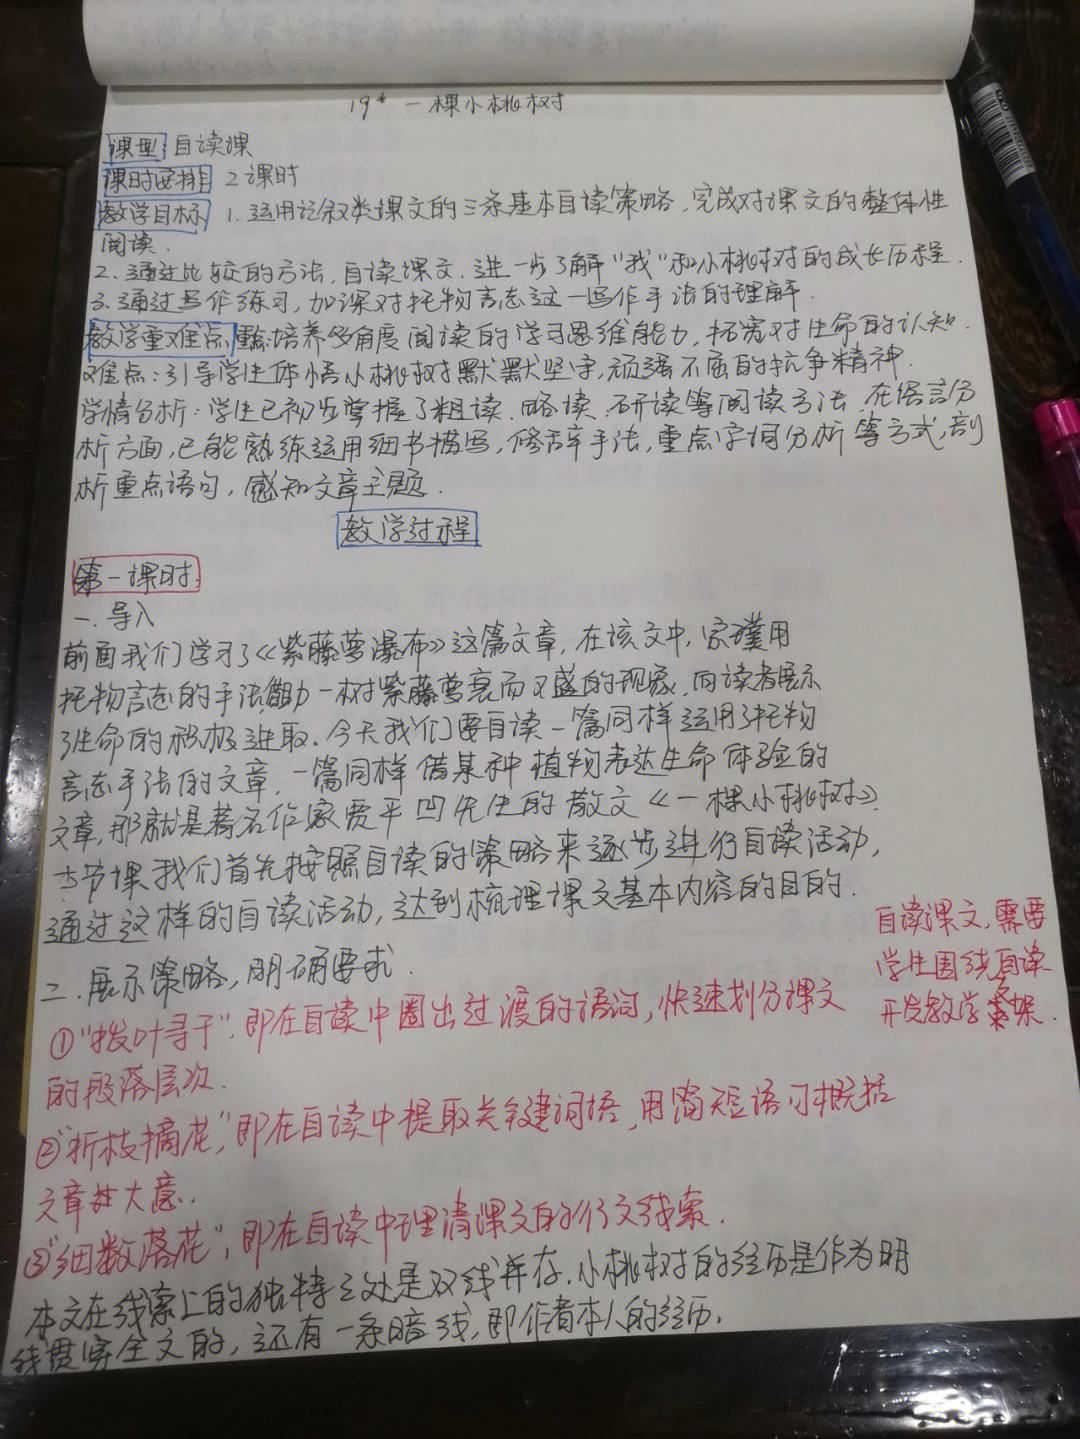 19* 一棵小桃树
课型 自读课
课时安排 2课时
教学目标 1.运用记叙类课文的三条基本自读策略,完成对课文的整体性
阅读.
2.通过比较的方法,自读课文.进一步了解“我”和小桃树的成长历程.
3.通过写作练习,加深对托物言志这一写作手法的理解.
教学重难点 重点:培养多角度阅读的学习思维能力,拓宽对生命的认知.
难点:引导学生体悟小桃树默默坚守,顽强不屈的抗争精神.
学情分析:学生已初步掌握了粗读、略读、研读等阅读方法,在语言分
析方面,已能熟练运用细书描写,修辞手法,重点字词分析等方式,剖
析重点语句,感知文章主题.
教学过程
第一课时:
一.导入
前面我们学习了《紫藤萝瀑布》这篇文章,在该文中,宗璞用
托物言志的手法,借助一树紫藤萝衰而又盛的现象,向读者展示
了生命的积极进取.今天我们要自读一篇同样运用了托物
言志手法的文章,一篇同样借某种植物表达生命体验的
文章,那就是著名作家贾平凹先生的散文《一棵小桃树》.
本节课我们首先按照自读的策略来逐步进行自读活动,
通过这样的自读活动,达到梳理课文基本内容的目的.
自读课文,需要
学生围绕自读
开发教学
二.展示策略,明确要求.
①“拨叶寻干”,即在自读中圈出过渡的语词,快速划分课文
的段落层次.
②“折枝摘花”,即在自读中提取关键词语,用简短语句概括
文章大意.
③“细数落花”,即在自读中理清课文的行文线索.
本文在线索上的独特之处是双线并存.小桃树的经历是作为明
线贯穿全文的,还有一条暗线,即作者本人的经历.